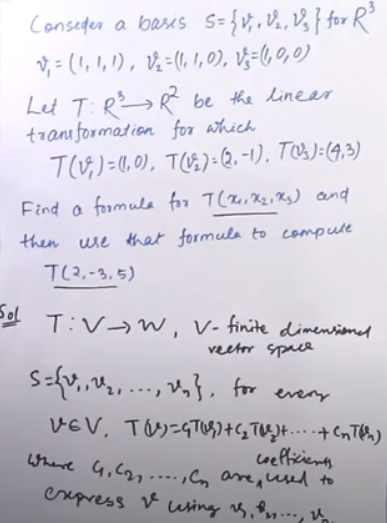 Consider a basis S={v₁, v₂, v₃} for R³
v₁ = (1, 1, 1), v₂=(1, 1, 0), v₃=(1, 0, 0)
Let T: R³→R² be the linear
transformation for which
T(v₁)=(1,0), T(v₂)=(2,-1), T(v₃)=(4,3)
Find a formula for T(x₁, x₂, x₃) and
then use that formula to compute
T(2,-3,5)
Sol T: V→W, V- finite dimensional
vector space
S={v₁, v₂, ..., vₙ}, for every
v∈V, T(v)=c₁T(v₁)+c₂T(v₂)+....+cₙT(vₙ)
where c₁, c₂, ...., cₙ are coefficients used to
express v using v₁, v₂, ..., vₙ